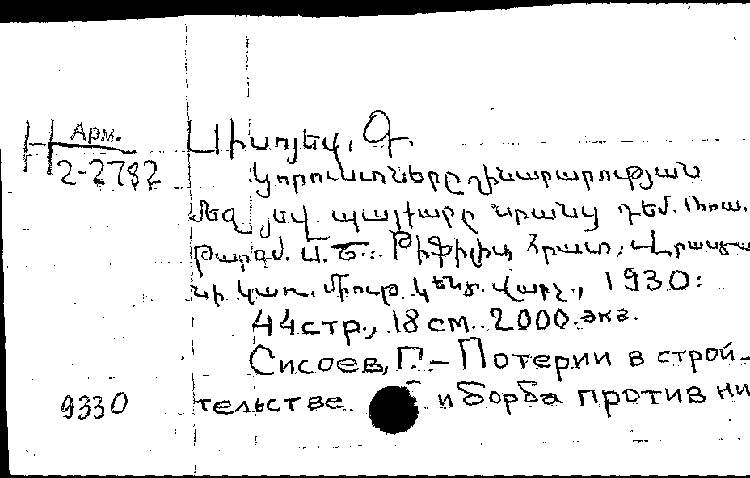 Арм.
Н 2-2782
Սիսոյեվ, Գ.
Կորուստները շինարարության
մեջ յեվ պայքարը նրանց դեմ. Ռուս.
թարգմ. Ա. Տ. Թիֆլիս, հրատ.
կառ. միութ. կենտ. վարչ., 1930:
44стр., 18 см. 2000.экз.
Сисоев, Г. – Потерии в строй-
9330 тельстве и борба против ни